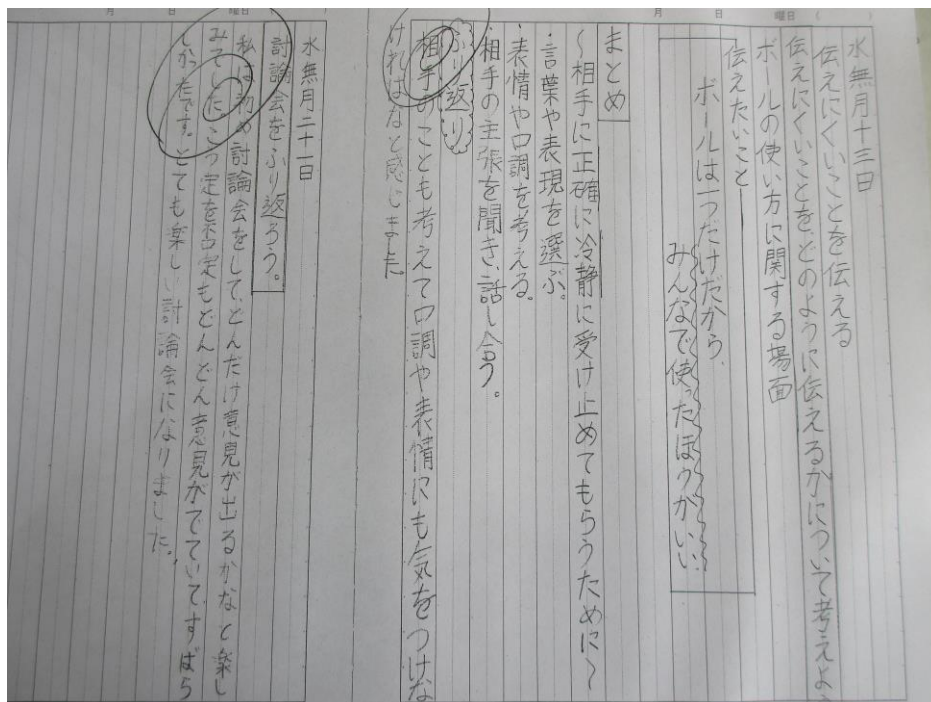 月 日 曜日( )
水無月十三日
伝えにくいことを伝える
伝えにくいことを、どのように伝えるかについて考えよ
ボールの使い方に関する場面
伝えたいこと
ボールは一つだけだから、
みんなで使ったほうがいい
まとめ
〜相手に正確に冷静に受け止めてもらうために〜
・言葉や表現を選ぶ。
・表情や口調を考える。
・相手の主張を聞き、話し合う。
ふり返り
相手のことも考えて口調や表情にも気をつけな
ければなと感じました
月 日 曜日( )
水無月二十一日
討論会をふり返ろう。
私は初め討論会をして、どんだけ意見が出るかなと楽し
みでした。こう定を否定もどんどん意見がでていてすばら
しかったです。とても楽しい討論会になりました。